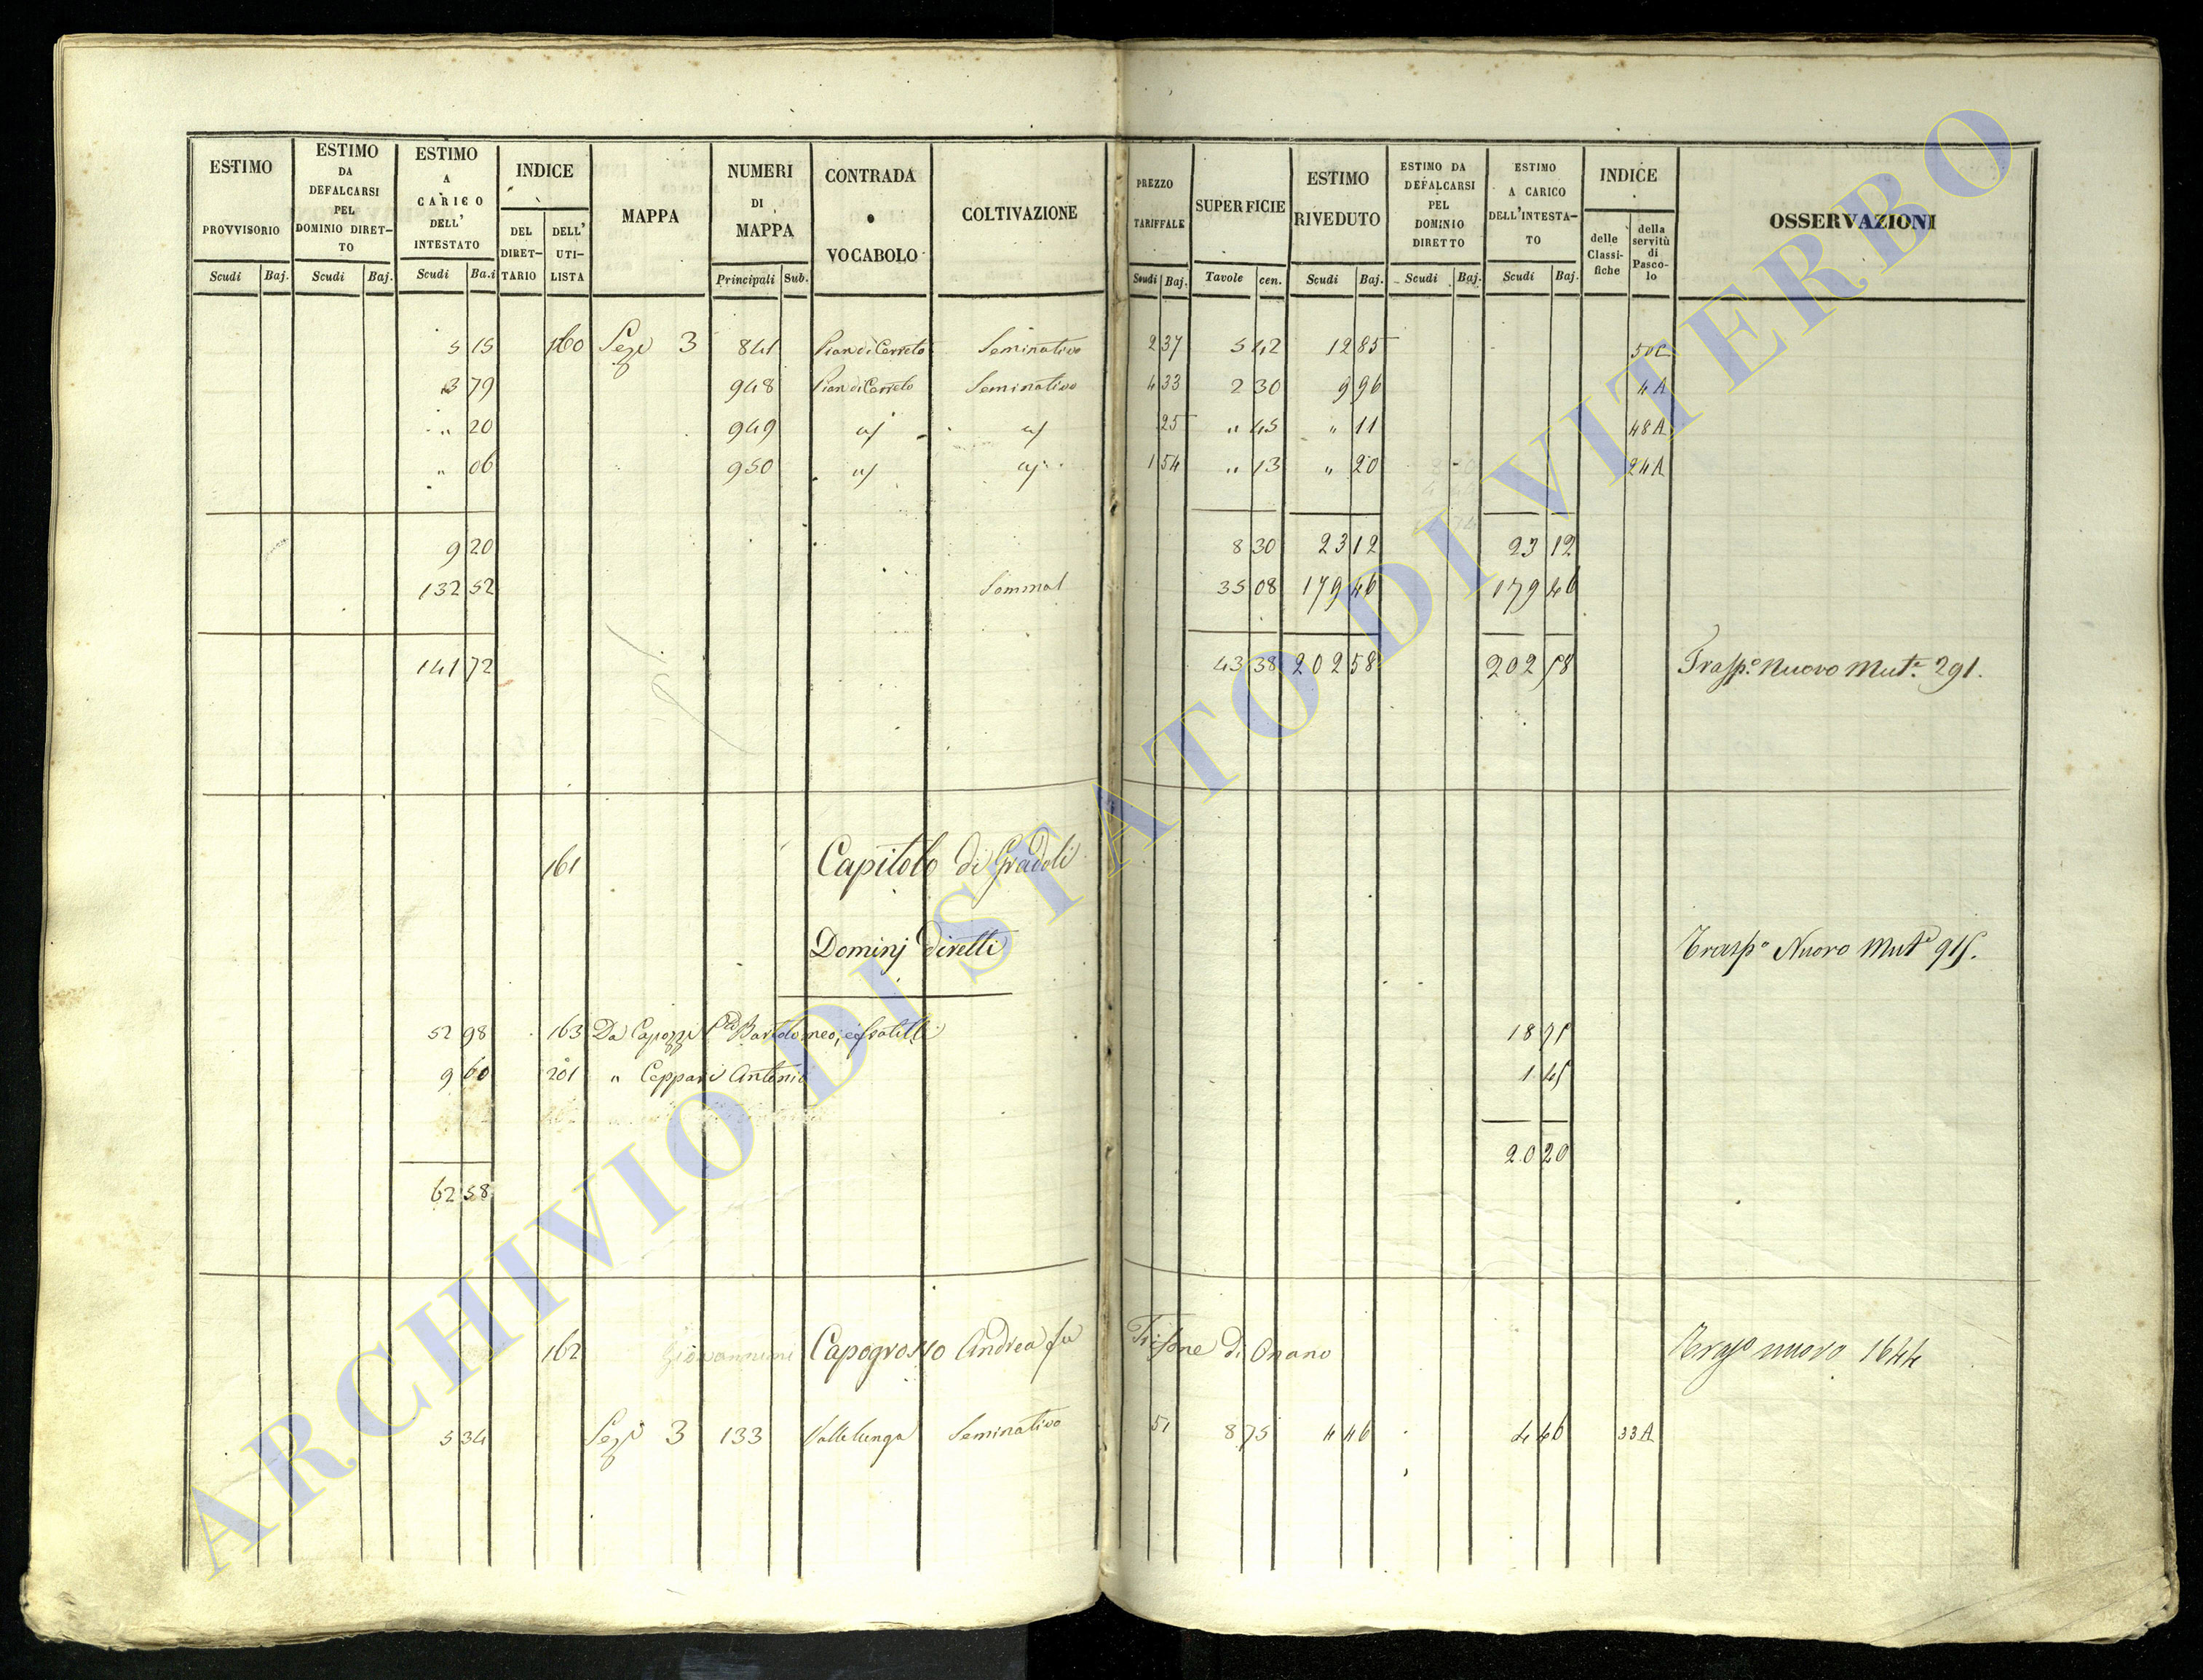 ESTIMO PROVVISORIO Scudi Baj. | ESTIMO DA DEFALCARSI PEL DOMINIO DIRET-TO Scudi Baj. | ESTIMO A CARICO DELL' INTESTATO Scudi Ba.i | INDICE DEL DIRET-TARIO DELL' UTI-LISTA | MAPPA | NUMERI DI MAPPA Principali Sub. | CONTRADA o VOCABOLO | COLTIVAZIONE | PREZZO TARIFFALE Scudi Baj. | SUPERFICIE Tavole cen. | ESTIMO RIVEDUTO Scudi Baj. | ESTIMO DA DEFALCARSI PEL DOMINIO DIRETTO Scudi Baj. | ESTIMO A CARICO DELL'INTESTA-TO Scudi Baj. | INDICE delle Classi-fiche della servitù di Pasco-lo | OSSERVAZIONI
5 15 160 Sez.e 3 841 Pian di Cerreto Seminativo 2 37 5 42 12 85 50C
3 79 948 Pian di Cerreto Seminativo 4 33 2 30 9 96 4A
" 20 949 25 " 45 " 11 48A
" 06 950 1 54 " 13 " 20 24A
9 20 8 30 23 12 23 12
132 52 Sommal 35 08 179 46 179 46
141 72 43 38 202 58 202 58 Trasp.o Nuovo Mut.e 291.
161 Capitolo di Gradoli
Dominj diretti Trasp.o Nuovo Mut.e 915.
52 98 163 Da Capozzi Bartolomeo, e fratelli 18 75
9 60 201 " Ceppari Antonio 1 45
20 20
62 58
162 Giovannini Capogrosso Andrea fu Trifone di Onano Trasp.o nuovo 1644
5 34 Sez.e 3 133 Vallelunga Seminativo 51 8 75 4 46 4 46 33A
ARCHIVIO DI STATO DI VITERBO